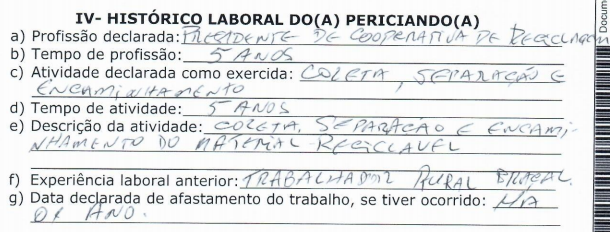 Docum
IV- HISTÓRICO LABORAL DO(A) PERICIANDO(A)
a) Profissão declarada: PRESIDENTE DE COOPERATIVA DE RECICLAGEM
b) Tempo de profissão: 5 ANOS
c) Atividade declarada como exercida: COLETA, SEPARAÇÃO E
ENCAMINHAMENTO
d) Tempo de atividade: 5 ANOS
e) Descrição da atividade: COLETA, SEPARAÇÃO E ENCAMI-
NHAMENTO DO MATERIAL RECICLAVEL
f) Experiência laboral anterior: TRABALHADOR RURAL BRAÇAL.
g) Data declarada de afastamento do trabalho, se tiver ocorrido: HA
01 ANO.